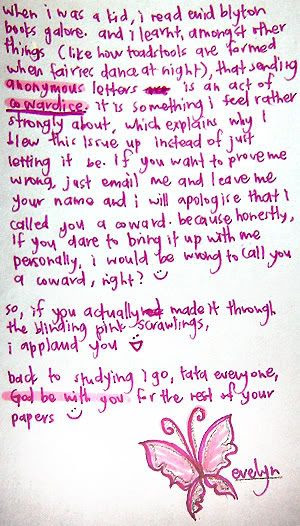 when i was a kid, i read enid blyton
books galore. and i learnt, amongst other
things (like how toadstools are formed
when fairies dance at night), that sending
anonymous letters is an act of
cowardice. it is something i feel rather
strongly about, which explains why i
blew this issue up instead of just
letting it be. If you want to prove me
wrong, just email me and leave me
your name and i will apologise that i
called you a coward. because honestly,
if you dare to bring it up with me
personally, i would be wrong to call you
a coward, right?
so, if you actually made it through
the blinding pink scrawlings,
i applaud you
back to studying i go, tata everyone,
God be with you for the rest of your
papers
evelyn